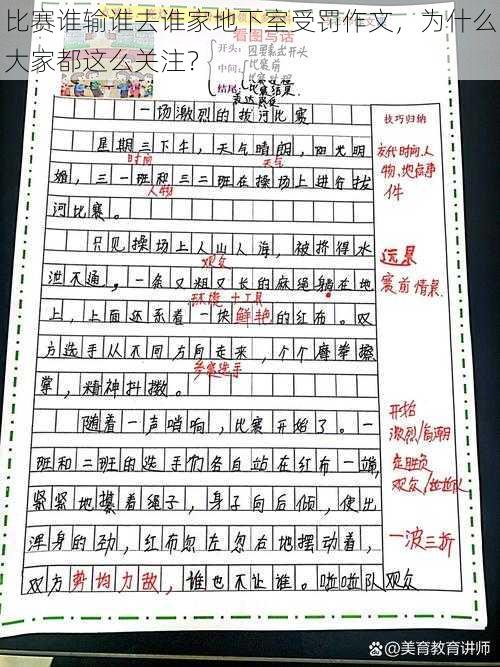 比赛谁输谁去谁家地下室受罚作文，为什么
大家都这么关注？
看图写话
开头：四要素式开头
中间：比赛前
比赛过程
结尾：比赛结果
表达感受
一场激烈的拔河比赛
技巧归纳
星期三下午，天气晴朗，阳光明
时间
天气
媚，三一班和三二班在操场上进行拔
人物
河比赛。
交代时间、人
物、地点事
件
只见操场上人山人海，被挤得水
观众
泄不通，一条又粗又长的麻绳躺在地
环境＋工具
上，上面还系着一块鲜艳的红布。双
方选手从不同方向走来，个个摩拳擦
参赛选手
掌，精神抖擞。
远景
赛前情景
随着一声哨响，比赛开始了。一
班和二班的选手们各自站在红布一端，
紧紧地攥着绳子，身子向后倾，使出
浑身的劲，红布忽左忽右地摆动着，
双方势均力敌，谁也不让谁。啦啦队
开始
激烈/高潮
定胜负
观众/啦啦队
一波三折
观众
@美育教育讲师